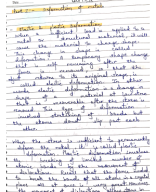 Part I - Deformation of metals
Elastic & plastic Deformation
When a sufficient load is applied to a
metal or structural material, it will
cause the material to change shape.
This change in shape is called
deformation. A temporary shape change
that is self reversing after the
force is removed, so that the
object returns to its original shape is
called elastic deformation. In other
words elastic deformation is a change in
shape of a material at low stress
that is recoverable after the stress is
removed. This type of deformation
involves stretching of bonds
atoms other.
When the stress is sufficient to permanently
deform the metal it is called plastic
deformation. Plastic deformation involves
the breaking of limited number of
atomic bonds by the movement of
dislocations. the force needed
to break the bonds of all the atoms in a crystal
plane all at once is very great. However